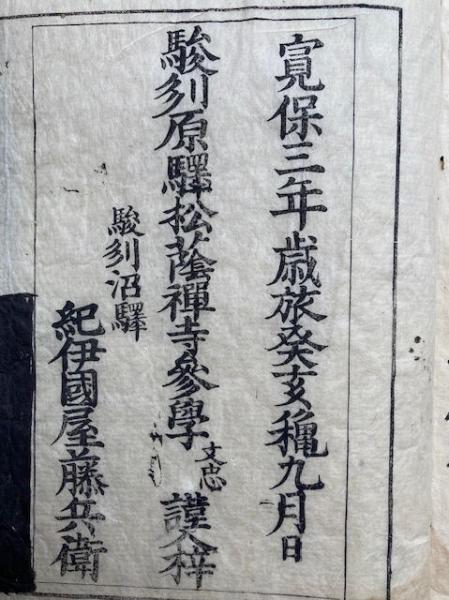 寛保三年歳旅癸亥穐九月日
駿刕原驛松蔭禪寺參學 文忠 謹入梓
駿刕沼驛
紀伊國屋藤兵衛